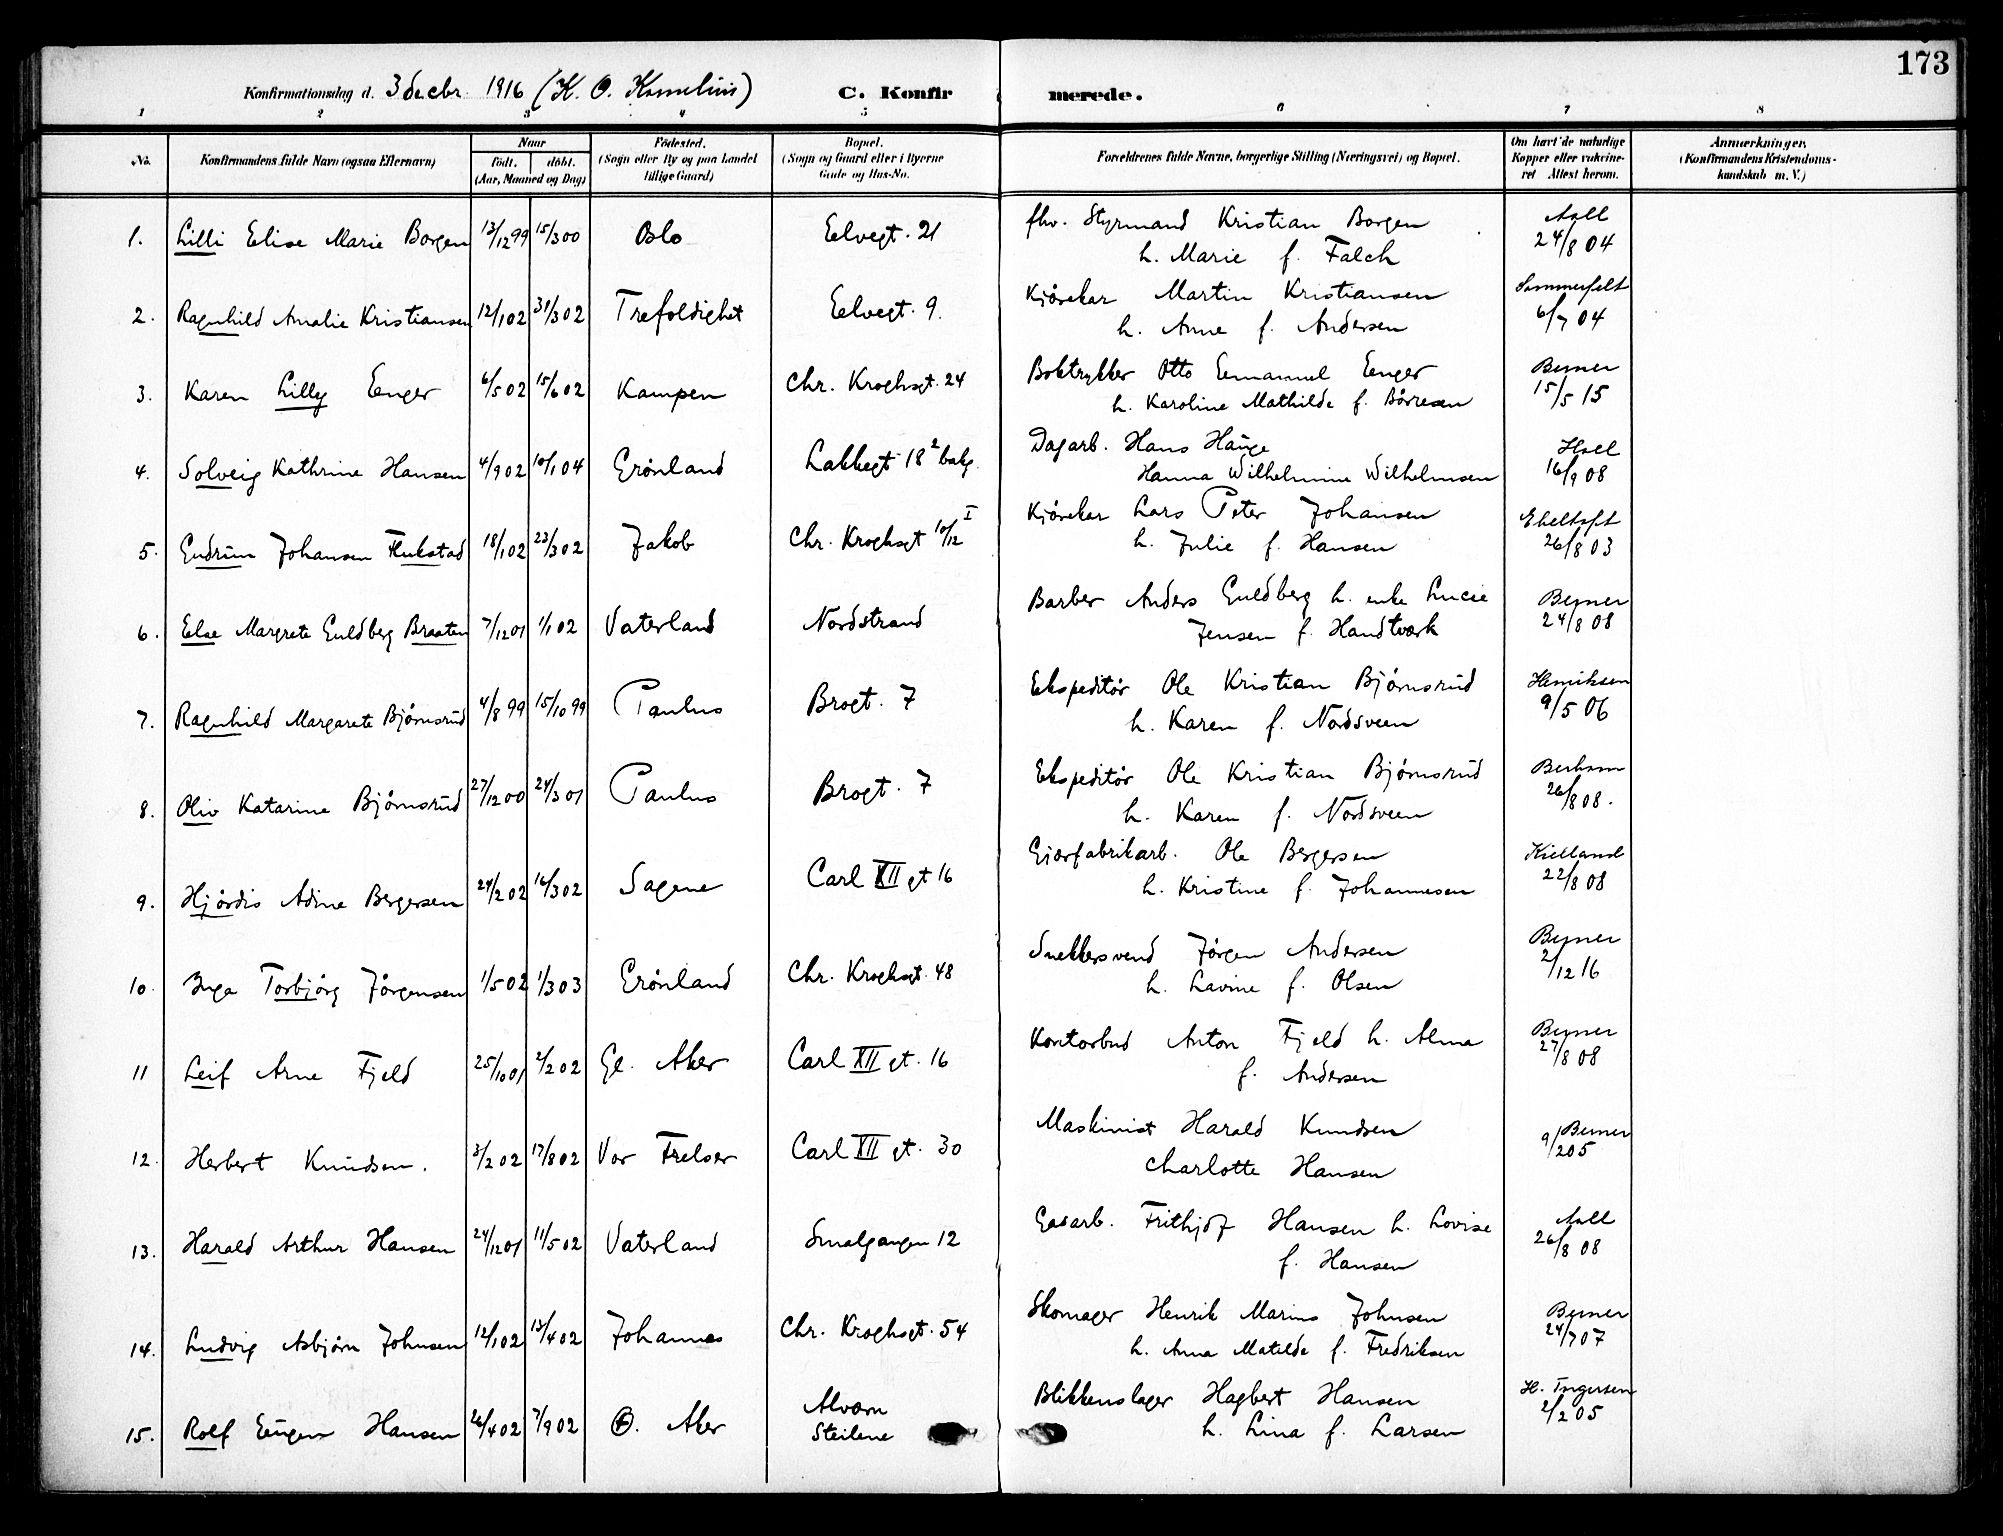 173
Konfirmationsdag d. 3 decbr. 1916 (K. O. Kornelius) C. Konfirmerede.
1 2 3 4 5 6 7 8
No. Konfirmandens fulde Navn (ogsaa Efternavn) Naar født. døbt. (Aar, Maaned og Dag) Fødested. (Sogn eller By og paa Landet tillige Gaard) Bopæl. (Sogn og Gaard eller i Byerne Gade og Hus-No. Forældrenes fulde Navne, borgerlige Stilling (Næringsvei) og Bopæl. Om havt de naturlige Kopper eller vakcineret Attest herom. Anmærkninger. (Konfirmandens Kristendomskundskab m. V.)
1. Lilli Elise Marie Borgen 13/12 99 15/3 00 Oslo Elvegt. 21 fhv. Styrmand Kristian Borgen Aall
h. Marie f. Falch 24/8 04
2. Ragnhild Amalie Kristiansen 12/1 02 31/3 02 Trefoldighet Elvegt. 9. Kjørekar Martin Kristiansen Sommerfelt
h. Anne f. Andersen 6/7 04
3. Karen Lilly Enger 6/5 02 15/6 02 Kampen Chr. Kroghsgt. 24 Boktrykker Otto Emanuel Enger Berner
h. Karoline Mathilde f. Børresen 15/5 15
4. Solveig Kathrine Hansen 4/9 02 10/1 04 Grønland Lakkegt 18² bakg. Dagarb. Hans Hauge Hall
Hanna Wilhelmine Wilhelmsen 16/9 08
5. Gudrun Johansen Flukstad 18/1 02 23/3 02 Jakob Chr. Kroghsgt 10/12 I Kjørekar Lars Peter Johansen Ebeltoft
h. Julie f. Hansen 26/8 03
6. Else Margrete Guldberg Braaten 7/12 01 1/1 02 Vaterland Nordstrand Barber Anders Guldberg h. enke Lucie Berner
Jensen f. Handtværk 24/8 08
7. Ragnhild Margarete Bjørnsrud 4/8 99 15/10 99 Paulus Brogt. 7 Ekspeditør Ole Kristian Bjørnsrud Henriksen
h. Karen f. Nordsveen 9/5 06
8. Oliv Katarine Bjørnsrud 27/12 00 24/3 01 Paulus Brogt. 7 Ekspeditør Ole Kristian Bjørnsrud
h. Karen f. Nordsveen 26/8 08.
9. Hjørdis Adine Bergersen 24/2 02 16/3 02 Sagene Carl XII gt 16 Gjærfabrikarb. Ole Bergersen Kielland
h. Kristine f. Johannesen 22/8 08
10. Inga Torbjørg Jørgensen 1/5 02 1/3 03 Grønland Chr. Kroghsgt. 48 Snekkersvend Jørgen Andersen Berner
h. Lavine f. Olsen 2/12 16
11 Leif Arne Fjeld 25/10 01 2/2 02 Gl. Aker Carl XII gt. 16 Kontorbud Anton Fjeld h. Alma Berner
f. Andersen 27/8 08
12. Herbert Knudsen. 3/2 02 17/8 02 Vor Frelser Carl XII gt. 30 Maskinist Harald Knudsen Berner
Charlotte Hansen 9/2 05
13. Harald Arthur Hansen 24/12 01 11/5 02 Vaterland Smalgangen 12 Gasarb. Frithjof Hansen h. Lovise Aall
f. Hansen 26/8 08
14. Ludvig Asbjørn Johnsen 12/1 02 13/4 02 Johannes Chr. Kroghsgt. 54 Skomager Henrik Marius Johnsen Berner
h. Anna Matilde f. Fredriksen 24/7 07
15. Rolf Eugen Hansen 26/4 02 7/9 02 Ø. Aker Alværn Steilene Blikkenslager Hagbert Hansen H. Ingersen
h. Lina f. Larsen 2/2 05